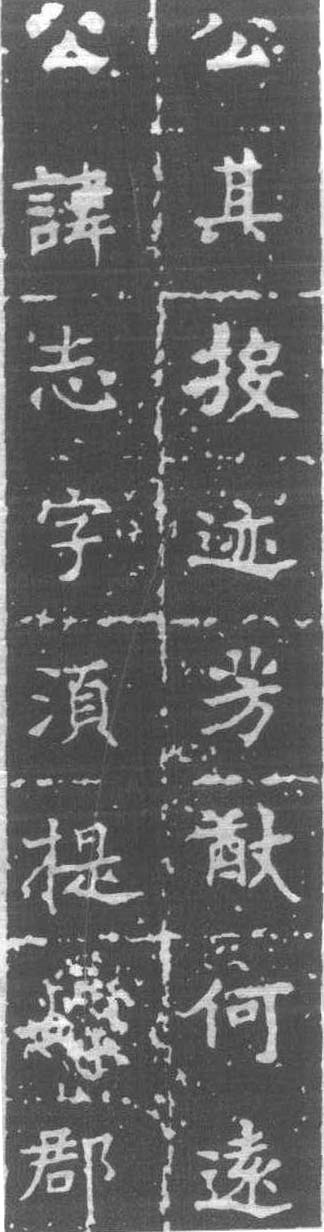 公其按迹芳猷何遠
公諱志字須提郡